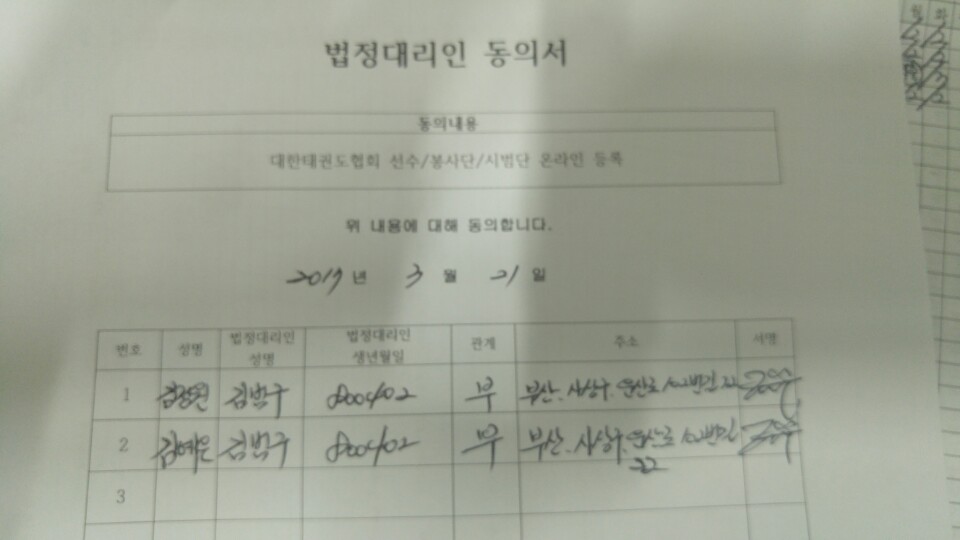 법정대리인 동의서
동의내용
대한태권도협회 선수/봉사단/시범단 온라인 등록
위 내용에 대해 동의합니다.
2017년 3월 21일
번호 성명 법정대리인 성명 법정대리인 생년월일 관계 주소 서명
1 김범구 800402 부 부산. 사상구
2 김예은 김범구 800402 부 부산. 사상구
22
3
월 화